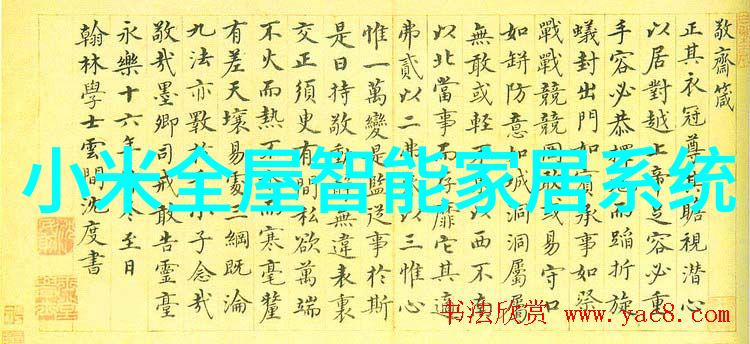 敬齋箴
正其衣冠尊其瞻視潛心
以居對越上帝足容必重
手容必恭擇地而蹈折旋
蟻封出門如賓承事如祭
戰戰兢兢罔敢或易守口
如缾防意如城洞洞屬屬
無敢或輕不以西不
以北當事而存靡它其適
弗貳以二弗以三惟心
惟一萬變是監從事於斯
是日持敬動無違表裏
交正須臾有間私欲萬端
不火而熱不而寒毫釐
有差天壤易處三綱既淪
九法亦斁小子念哉
敬哉墨卿司戒敢告靈臺
永樂十六年冬至日
翰林學士雲間沈度書
小米全屋智能家居系统
书法欣赏
www.yac8.com